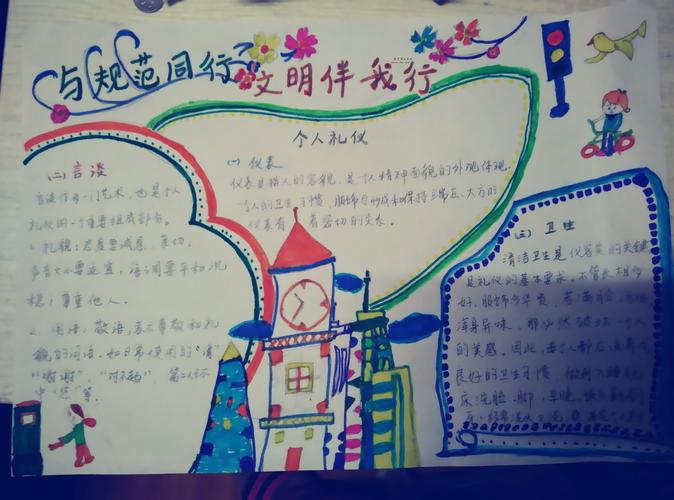 与规范同行 文明伴我行
个人礼仪
(一) 仪表
仪表是指人的容貌,是一个人精神面貌的外观体现。
一个人的卫生习惯,服饰与形成和保持端正、大方的
仪表有着密切的关系。
(二) 言谈
言谈作为一门艺术,也是个人
礼仪的一个重要组成部分。
1、礼貌:态度要诚恳、亲切;
声音大小要适宜,语调要平和沉
稳;尊重他人。
2、用语:敬语,表示尊敬和礼
貌的词语。如日常使用的“请”
“谢谢”、“对不起”,第二人称
中“您”等。
(三) 卫生
清洁卫生是仪容美的关键
是礼仪的基本要求。不管长相多
好,服饰多华贵,若满脸污垢
浑身异味,那必然破坏一个人
的美感。因此,每个人都应该养成
良好的卫生习惯,做到
床洗脸、脚,早晚